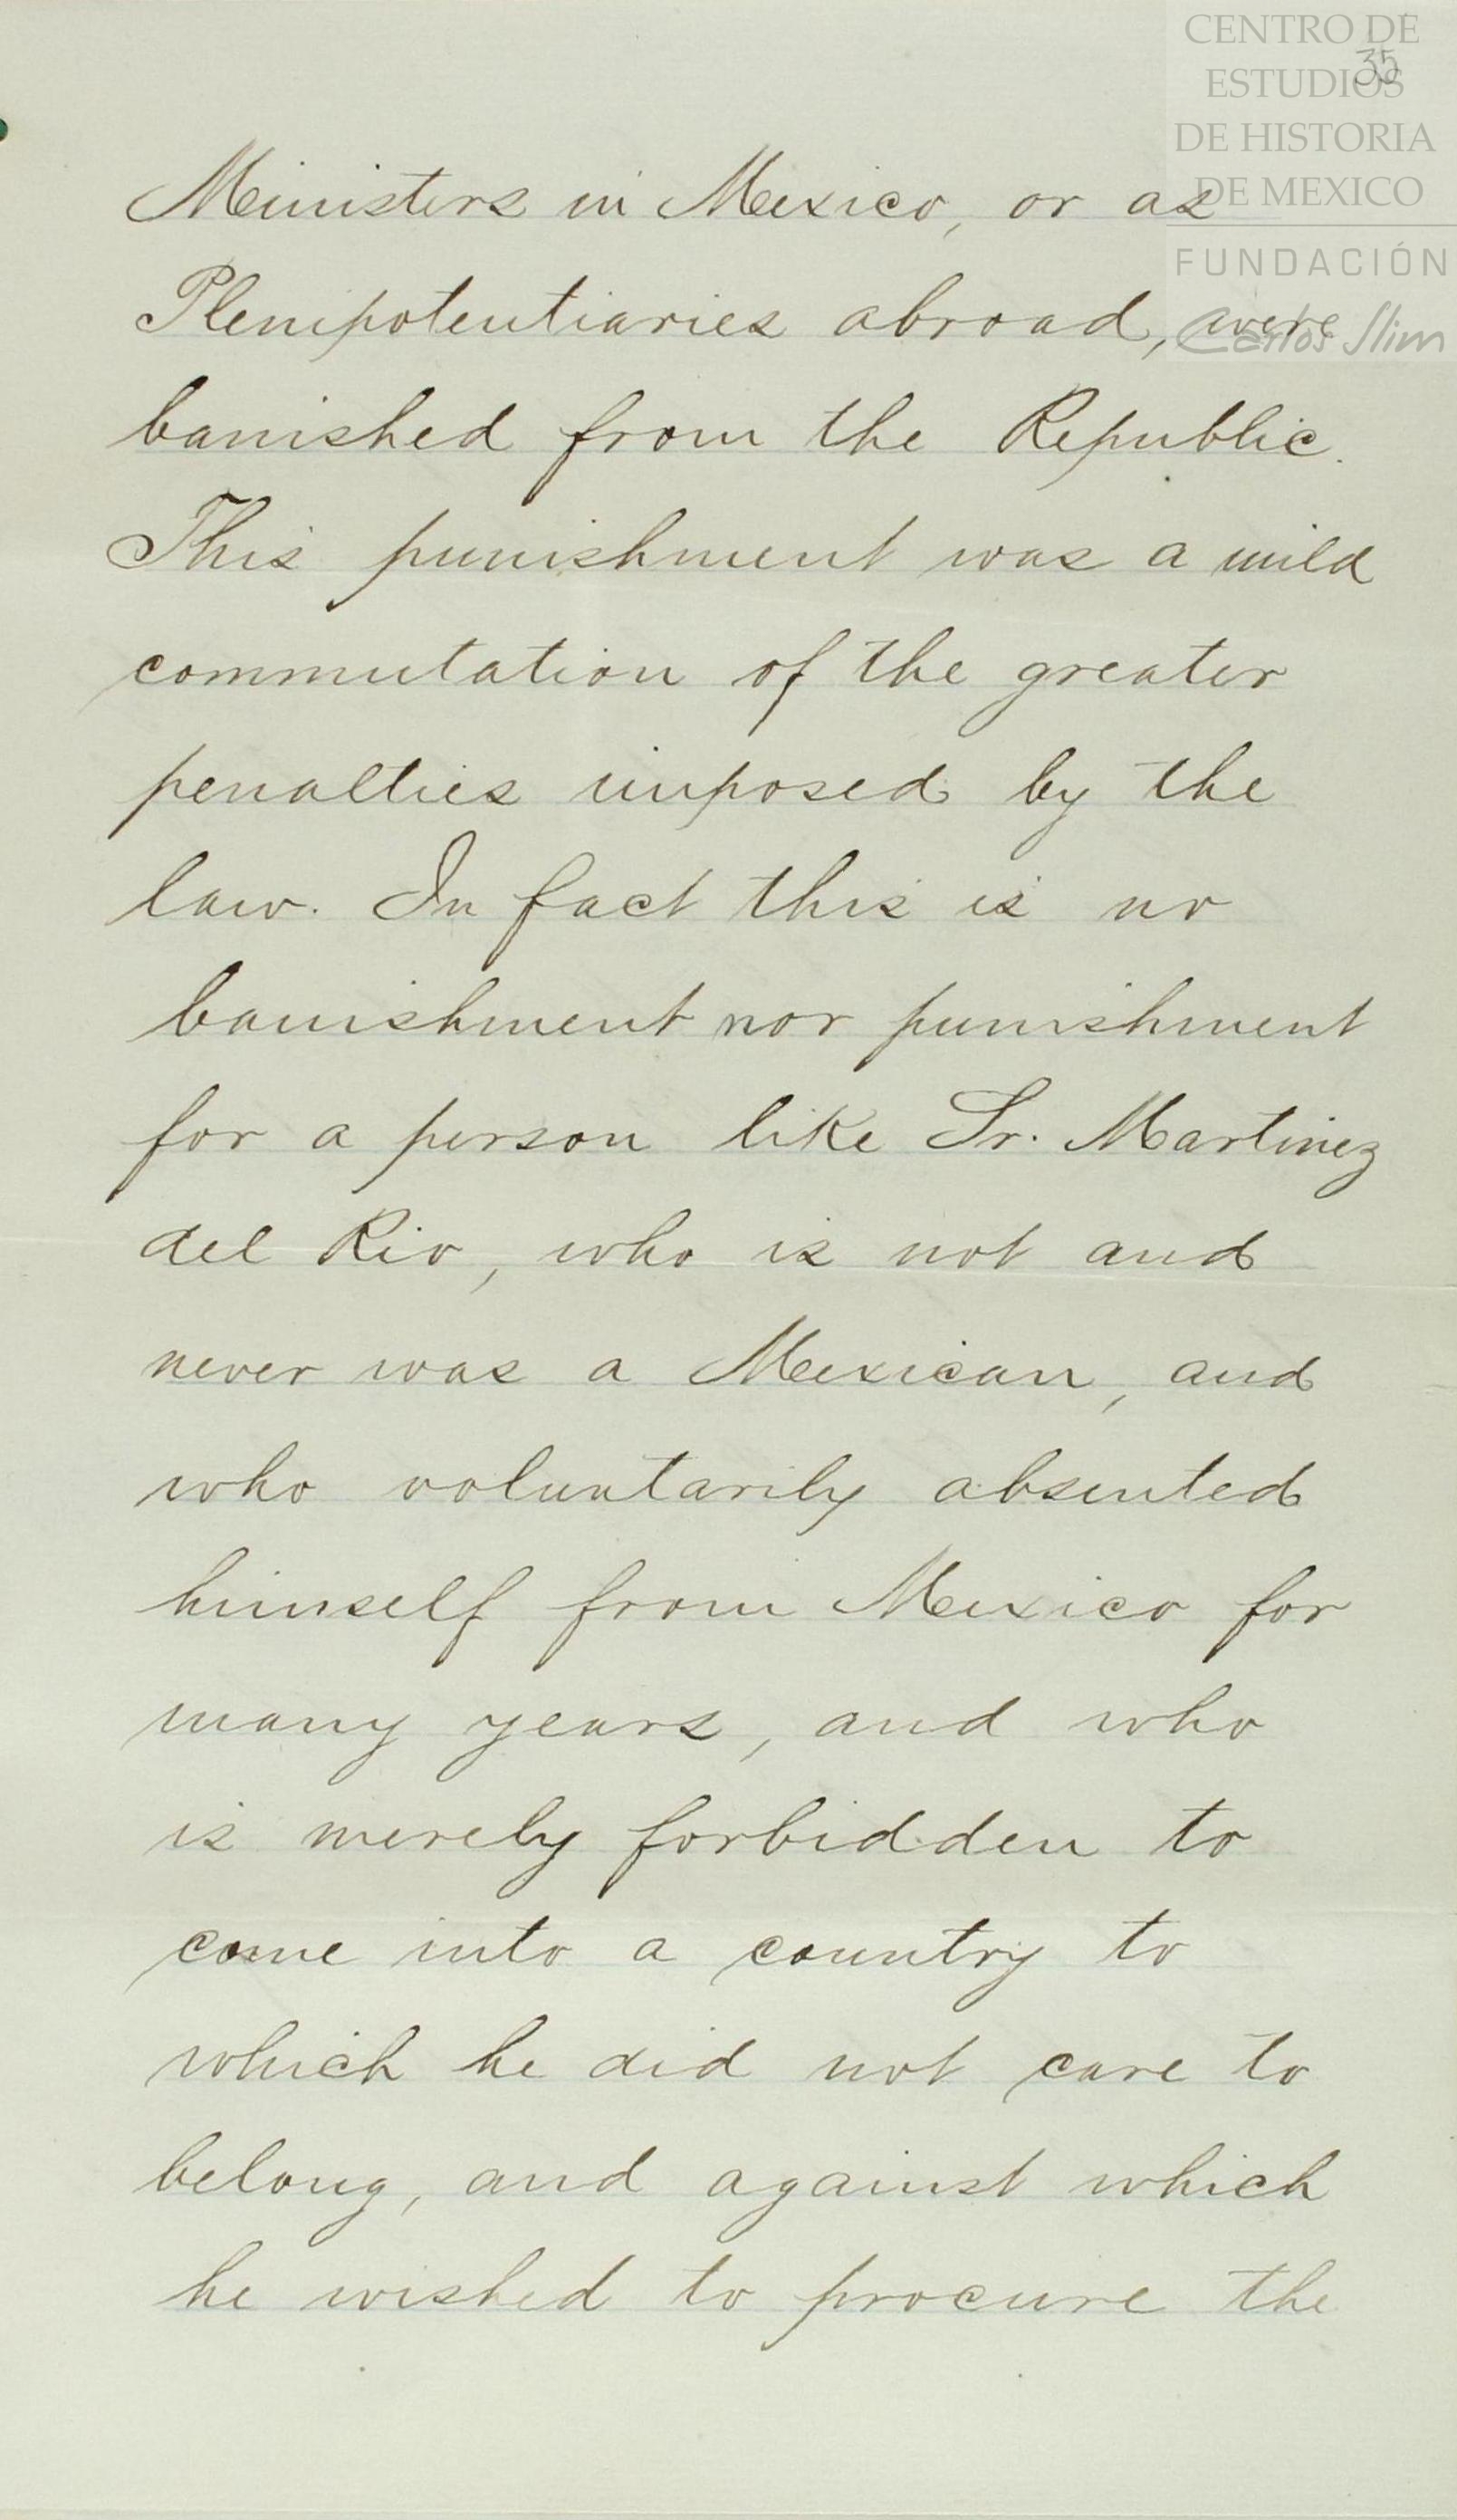 CENTRO DE
ESTUDIOS
DE HISTORIA
DE MEXICO
FUNDACIÓN
Carlos Slim
35
Ministers in Mexico, or as
Plenipotentiaries abroad, were
banished from the Republic.
This punishment was a mild
commutation of the greater
penalties imposed by the
law. In fact this is no
banishment nor punishment
for a person like Sr. Martinez
del Rio, who is not and
never was a Mexican, and
who voluntarily absented
himself from Mexico for
many years, and who
is merely forbidden to
come into a country to
which he did not care to
belong, and against which
he wished to procure the